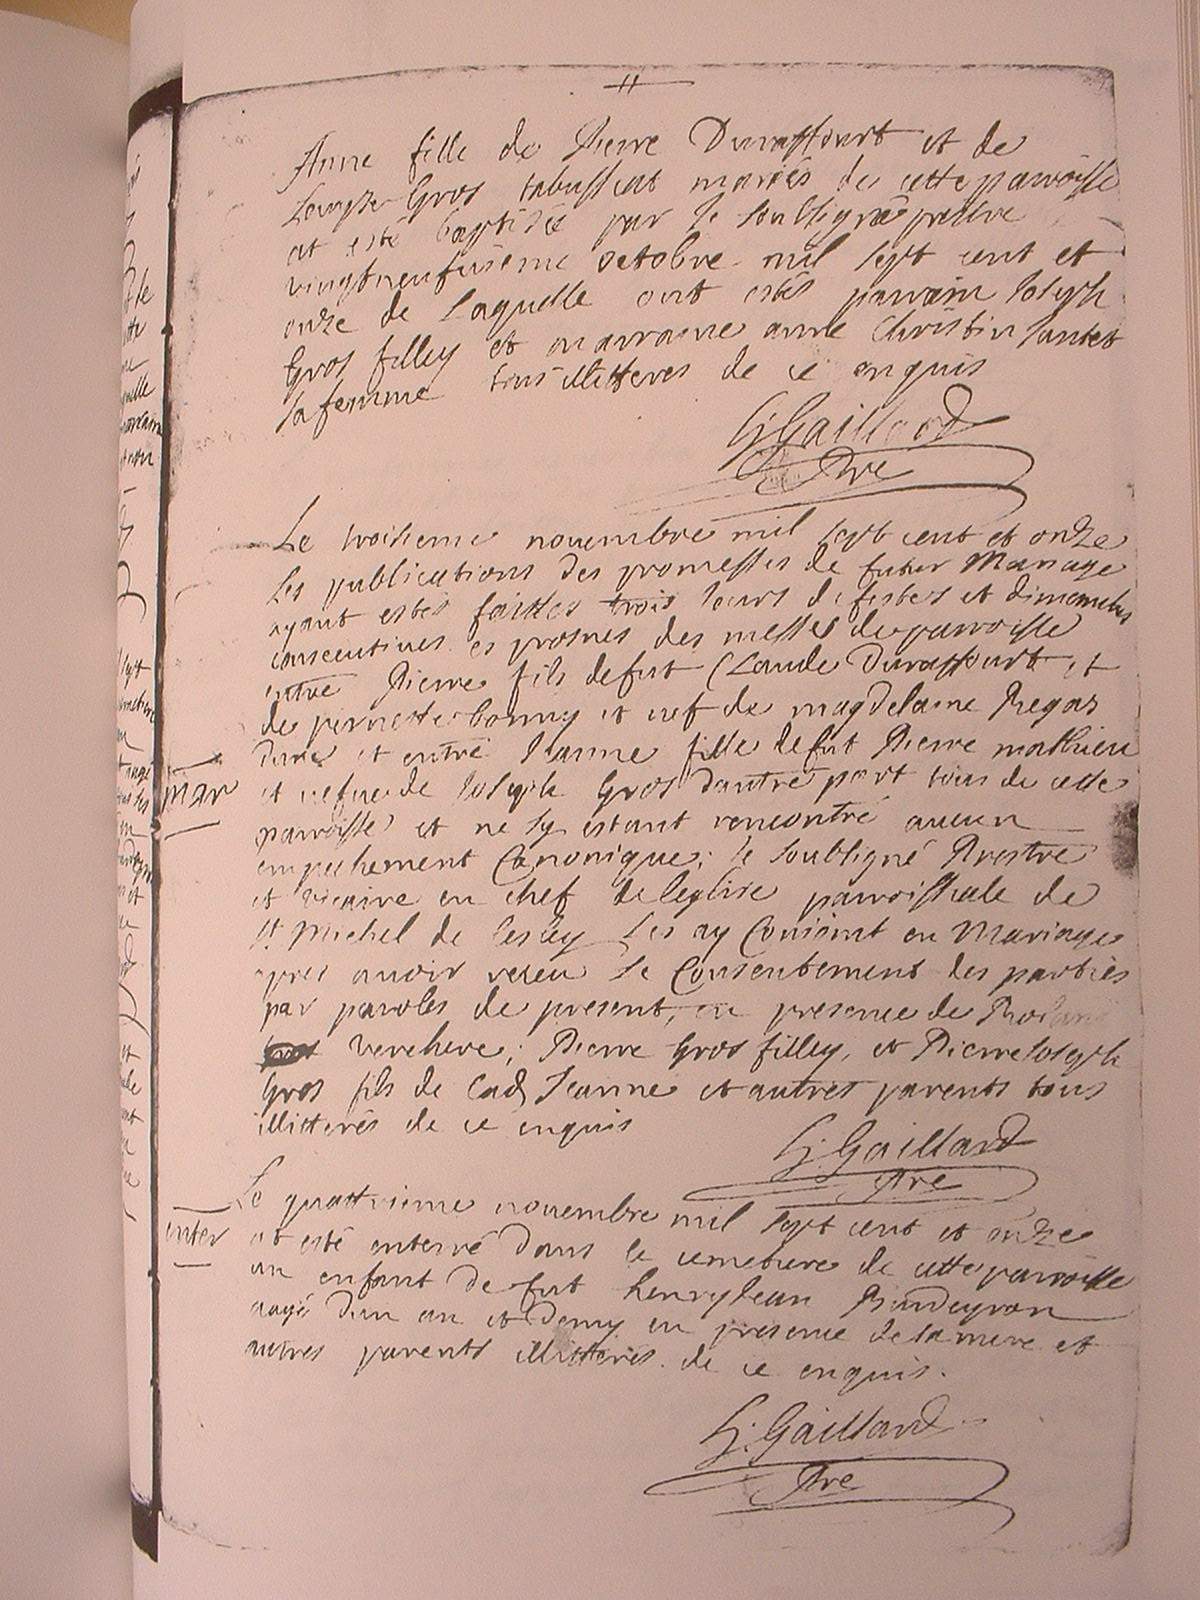 Anne fille de Pierre Duraffourt et de
Louyse Gros tabussiat mariés de cette paroisse
at esté baptisée par le soubsigné prestre
vingtneufvieme octobre mil sept cent et
onze de laquelle ont estés parrain Joseph
Gros filley et marraine anne Christin
sa femme tous illitterés de ce enquis
G: Gaillard
Pre
Le troisieme novembre mil sept cent et onze
Les publications des promesses de futur Mariage
ayant estés faittes trois jours de festes et dimenches
consecutives es prosnes des messes de parroisse
entre Pierre fils de fut Claude Duraffourt et
de pernette bonny et vef de magdelaine Regas
dune et entre Jeanne fille de fut Pierre mathieu
et vefve de Joseph Gros dautre part tous de cette
parroisse et ne sy estant rencontré aucun
empechement Canonique; je soubsigné Prestre
et vicaire en chef de leglise parroissiale de
St Michel de les ay Conjoint en Mariage
apres avoir receu le Consentement des parties
par paroles de present, en presence de
verchere; Pierre Gros filley, et Pierre Joseph
Gros fils de Lad Jeanne et autres parents tous
illitterés de ce enquis
G: Gaillard
Pre
Mar
Le quattrieme novembre mil sept cent et onze
at esté enterré dans le cemetiere de cette parroisse
un enfant de fut henry Jean
aagé dun an et demy en presence de sa mere et
autres parents illitterés de ce enquis.
G: Gaillard
Pre
enter